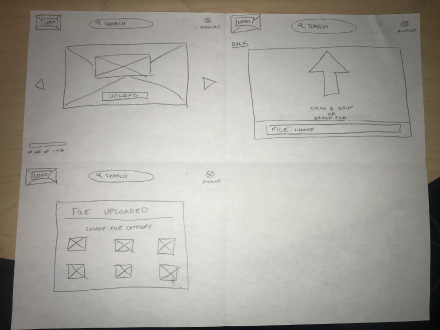 LOGO
SEARCH
ACCOUNT
UPLOAD
LOGO
SEARCH
ACCOUNT
BACK
DRAG & DROP
OR
FILE NAME
LOGO
SEARCH
ACCOUNT
FILE UPLOADED
CHOOSE FILE CATEGORY